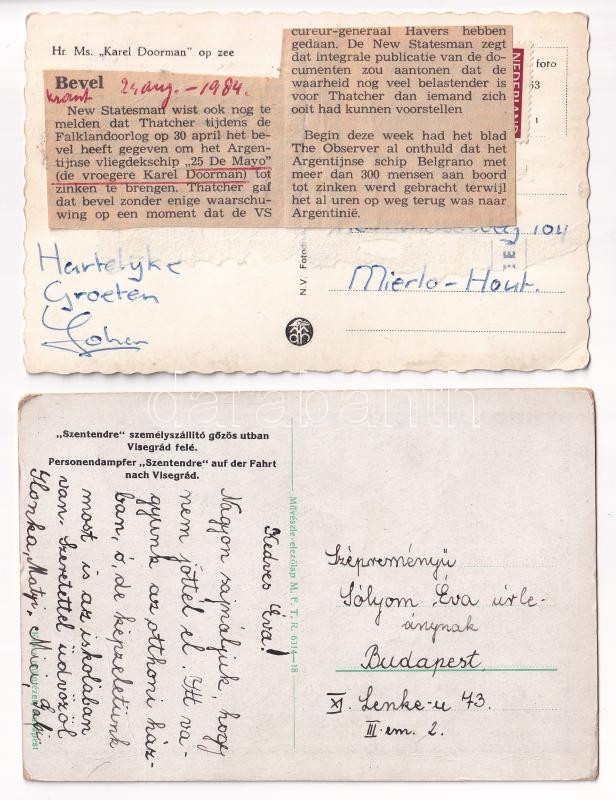 Hr. Ms. „Karel Doorman” op zee
foto
NEDERLAND
Bevel
krant
24 aug. - 1984.
New Statesman wist ook nog te
melden dat Thatcher tijdens de
Falklandoorlog op 30 april het be-
vel heeft gegeven om het Argen-
tijnse vliegdekschip „25 De Mayo”
(de vroegere Karel Doorman) tot
zinken te brengen. Thatcher gaf
dat bevel zonder enige waarschu-
wing op een moment dat de VS
cureur-generaal Havers hebben
gedaan. De New Statesman zegt
dat integrale publicatie van de do-
cumenten zou aantonen dat de
waarheid nog veel belastender is
voor Thatcher dan iemand zich
ooit had kunnen voorstellen
Begin deze week had het blad
The Observer al onthuld dat het
Argentijnse schip Belgrano met
meer dan 300 mensen aan boord
tot zinken werd gebracht terwijl
het al uren op weg terug was naar
Argentinië.
Hartelijke
Groeten
Johan
N.V. Fotodr
104
Mierlo-Hout.
darabanth
„Szentendre” személyszállitó gőzös utban
Visegrád felé.
Personendampfer „Szentendre” auf der Fahrt
nach Visegrád.
Kedves Éva!
Nagyon sajnáljuk, hogy
nem jöttél el. Itt va-
gyunk az otthoni ház-
ban, ó, de képzeletünk
most is az iskolában
van. Szeretettel üdvözöl
Ilonka, Matyi, Mici
Művészlevelezőlap M. F. T. R. 6314—18
Szépreményü
Sólyom Éva úrle-
ánynak
Budapest
XI. Lenke-u 73.
III. em. 2.